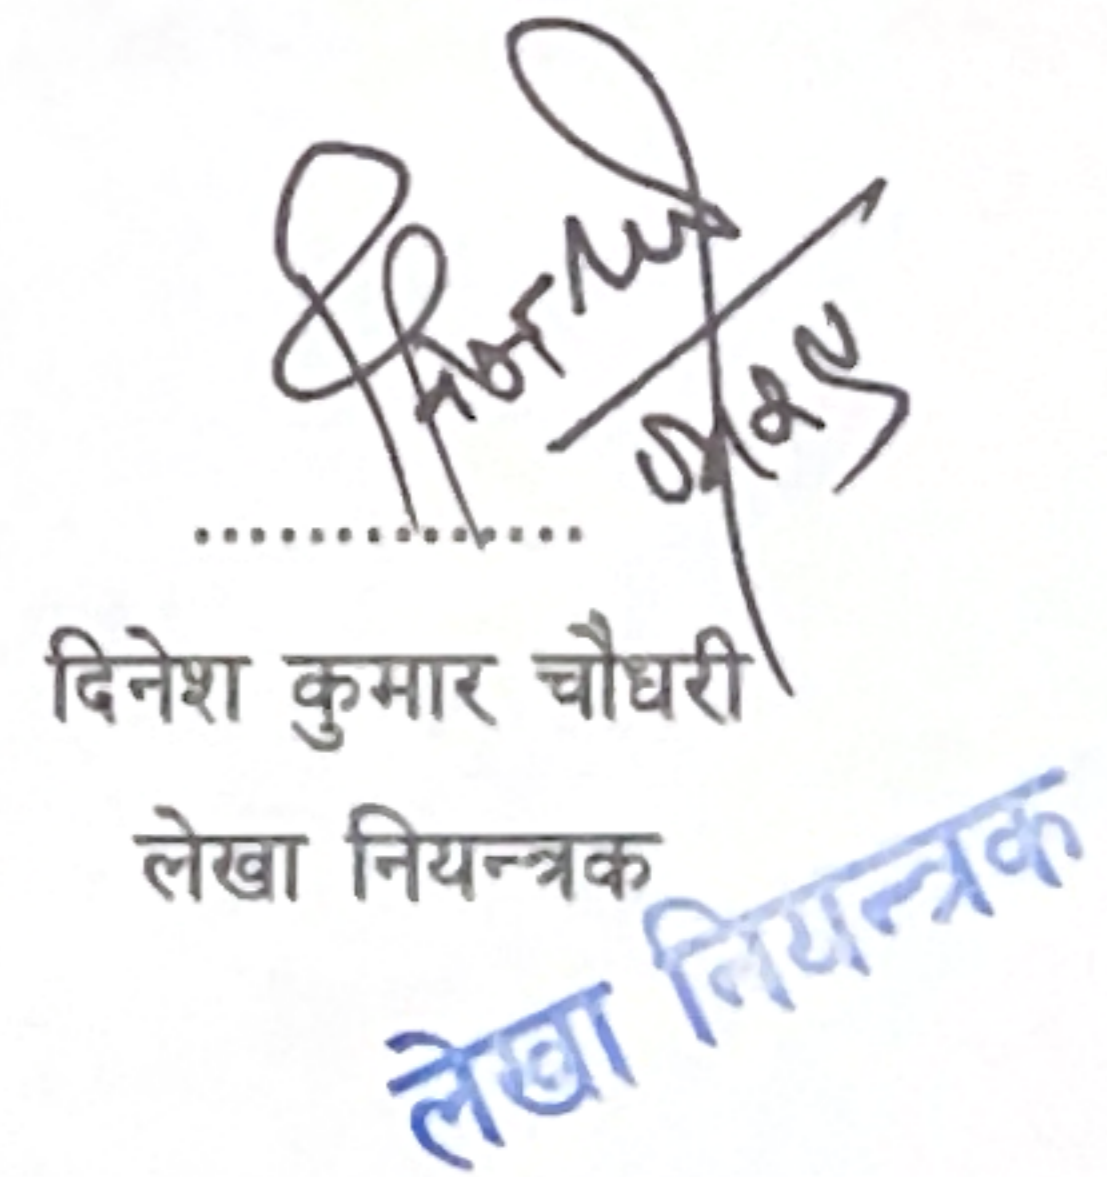 दिनेश कुमार चौधरी
लेखा नियन्त्रक
लेखा नियन्त्रक